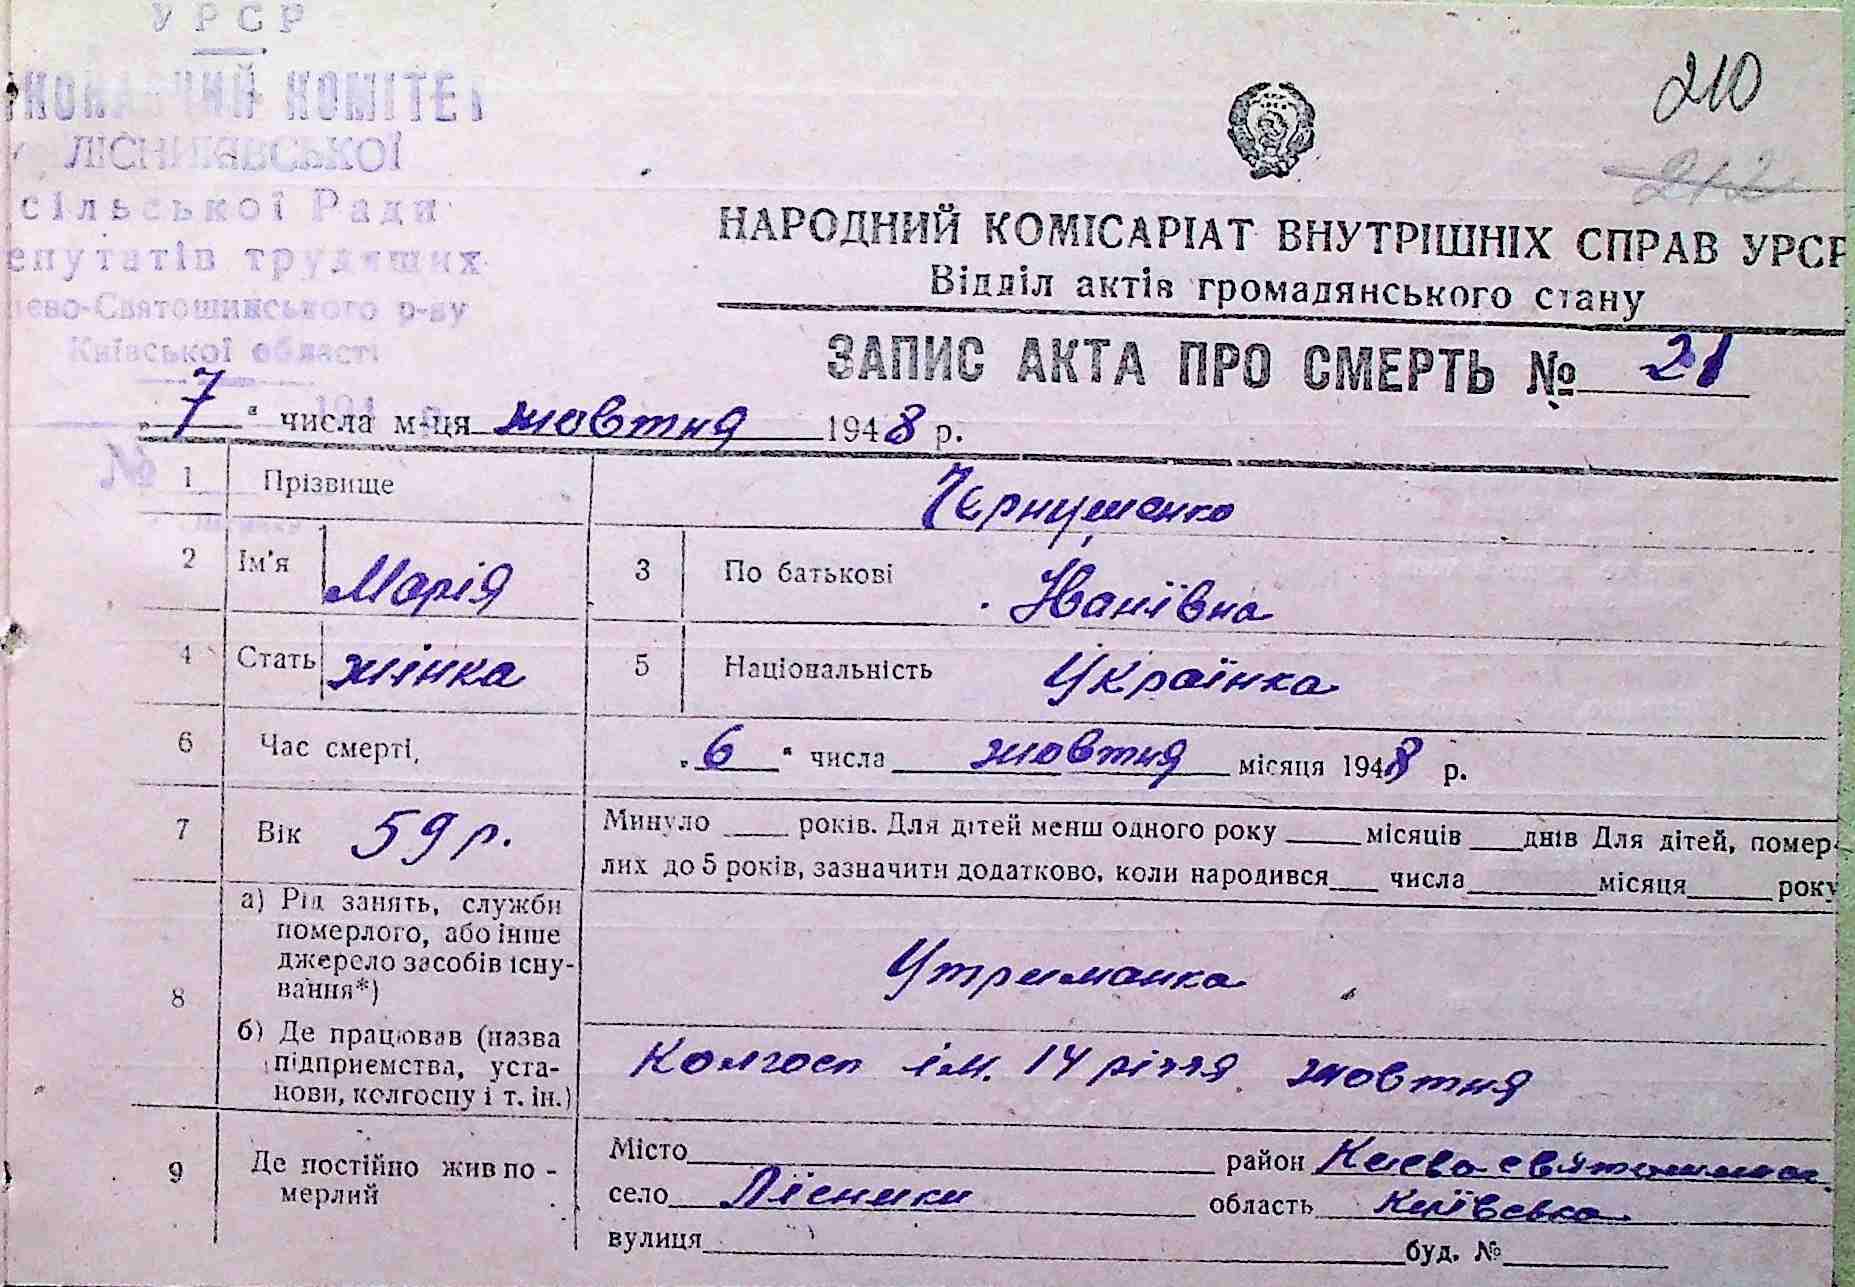 УРСР
ВИКОНАВЧИЙ КОМІТЕТ
сільської Ради
депутатів трудящих
Києво-Святошинського р-ну
Київської області
№
210
212
НАРОДНИЙ КОМІСАРІАТ ВНУТРІШНІХ СПРАВ УРСР
Відділ актів громадянського стану
ЗАПИС АКТА ПРО СМЕРТЬ № 21
„7“ числа м-ця жовтня 1948 р.
1 Прізвище Чернушенко
2 Ім'я Марія 3 По батькові Іванівна
4 Стать жінка 5 Національність Українка
6 Час смерті, „6“ числа жовтня місяця 1948 р.
7 Вік 59 р. Минуло ____ років. Для дітей менш одного року ____ місяців ___ днів Для дітей, помер-
лих до 5 років, зазначити додатково, коли народився ___ числа ____ місяця ____ року
8 а) Рід занять, служби
померлого, або інше
джерело засобів існу-
вання*)
Утриманка
б) Де працював (назва
підприємства, уста-
нови, колгоспу і т. ін.)
Колгосп ім. 14 річчя жовтня
9 Де постійно жив по-
мерлий
Місто ____ район Києво святошинськ
село Лісники область Київська
вулиця ____ буд. № ____